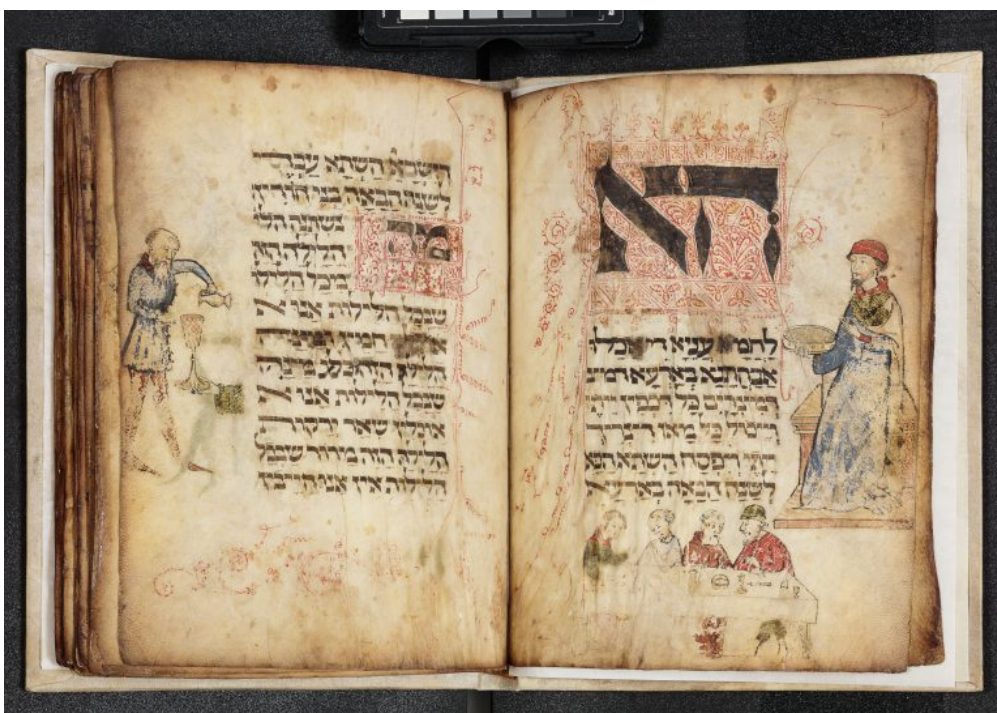 הא
לחמא עניא די אכלו
אבהתנא בארעא
דמצרים כל דכפין ייתי
וייכול כל מאן דצריך
ייתי ויפסח השתא הכא
לשנה הבאה בארעא
דישראל השתא עבדי
לשנה הבאה בני חורין
מה
נשתנה הלי
הלילה הזה
מכל הלילו
שבכל הלילות אנו א
חמץ ומצה
הלילה הזה
שבכל הלילות אנו א
אוכלין שאר ירקות
הלילה הזה מרור שבכל
הלילות אין אנו חייבין